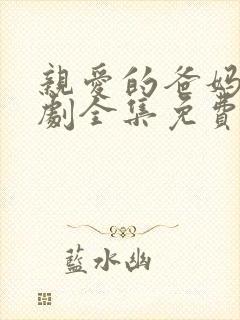 親愛的爸媽
劇全集免費
藍水幽